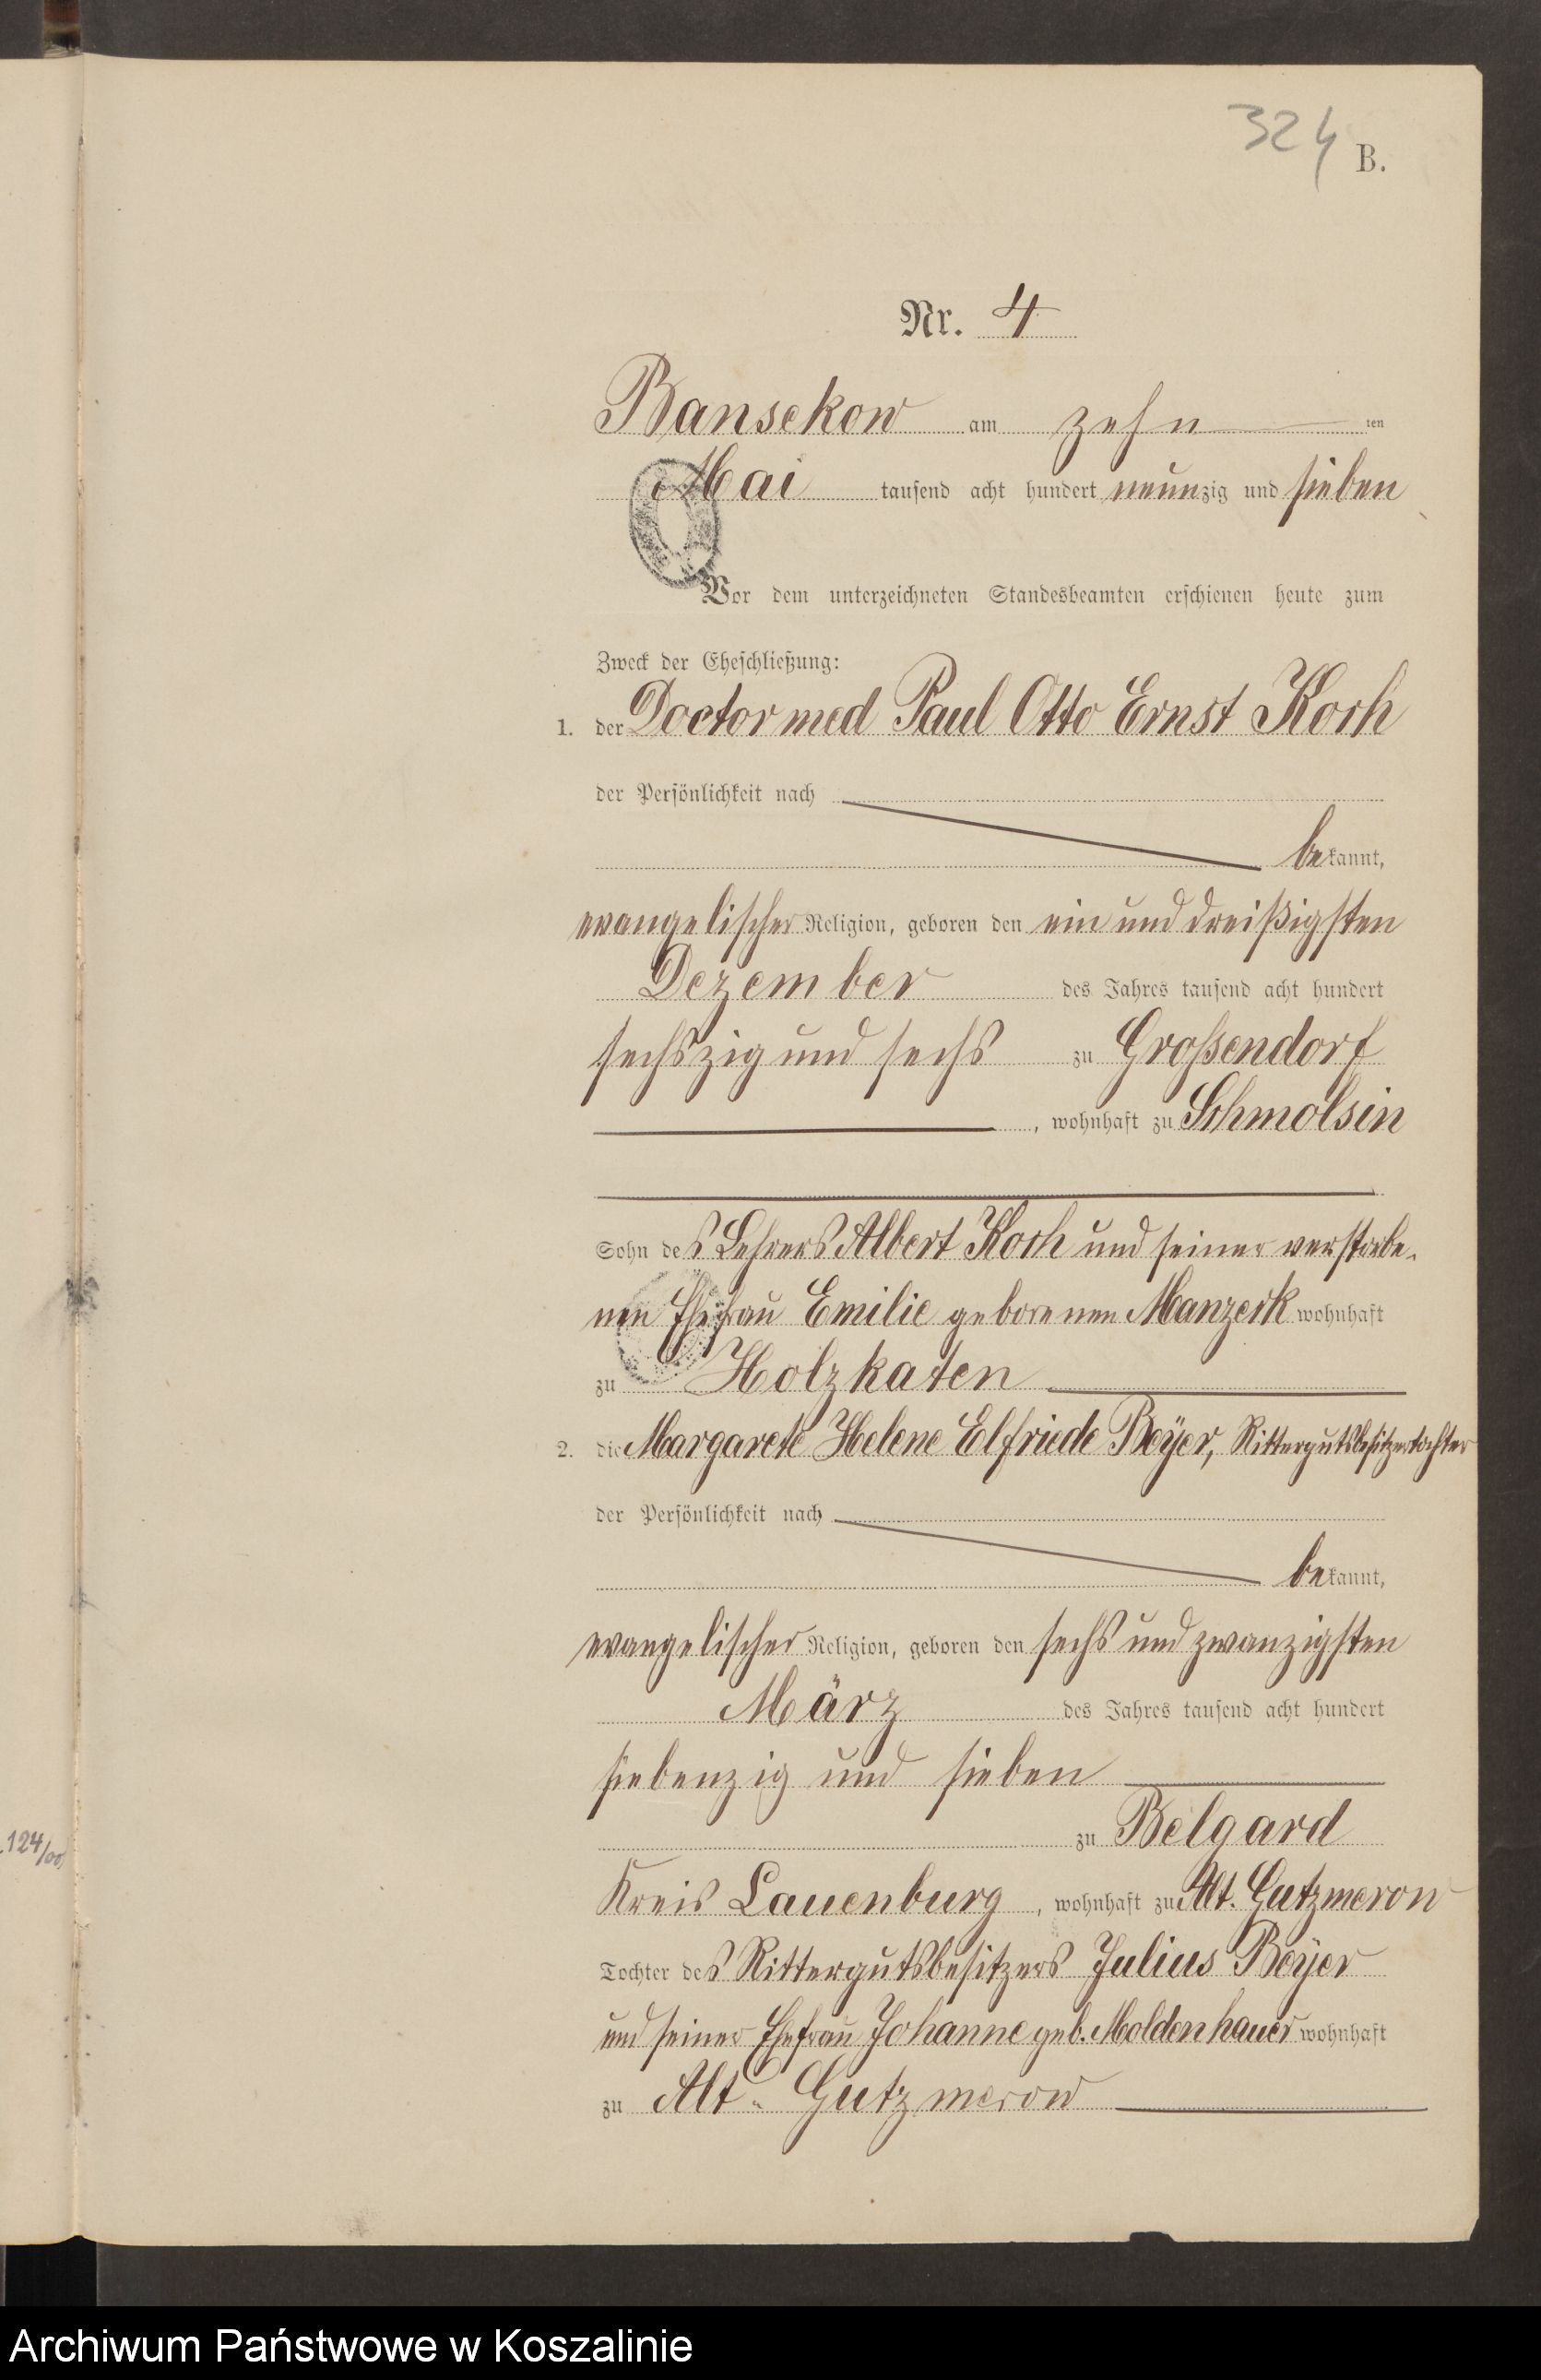 324
B.
Nr. 4
Bansekow am zehn ten
Mai tausend acht hundert neunzig und sieben
Vor dem unterzeichneten Standesbeamten erschienen heute zum
Zweck der Eheschließung:
1. der Doctor med Paul Otto Ernst Koch
der Persönlichkeit nach
bekannt,
evangelischer Religion, geboren den ein und dreißigsten
Dezember des Jahres tausend acht hundert
sechszig und sechs zu Großendorf
, wohnhaft zu Schmolsin
Sohn des Lehrers Albert Koch und seiner verstorbe-
nen Ehefrau Emilie geborenen Manzeck wohnhaft
zu Holzkaten
2. die Margarete Helene Elfriede Beÿer, Rittergutsbesitzertochter
der Persönlichkeit nach
bekannt,
evangelischer Religion, geboren den sechs und zwanzigsten
März des Jahres tausend acht hundert
siebenzig und sieben
zu Belgard
Kreis Lauenburg, wohnhaft zu Alt. Gutzmerow
124/00
Tochter des Rittergutsbesitzers Julius Beÿer
und seiner Ehefrau Johanne geb. Moldenhauer wohnhaft
zu Alt- Gutzmerow
Archiwum Państwowe w Koszalinie